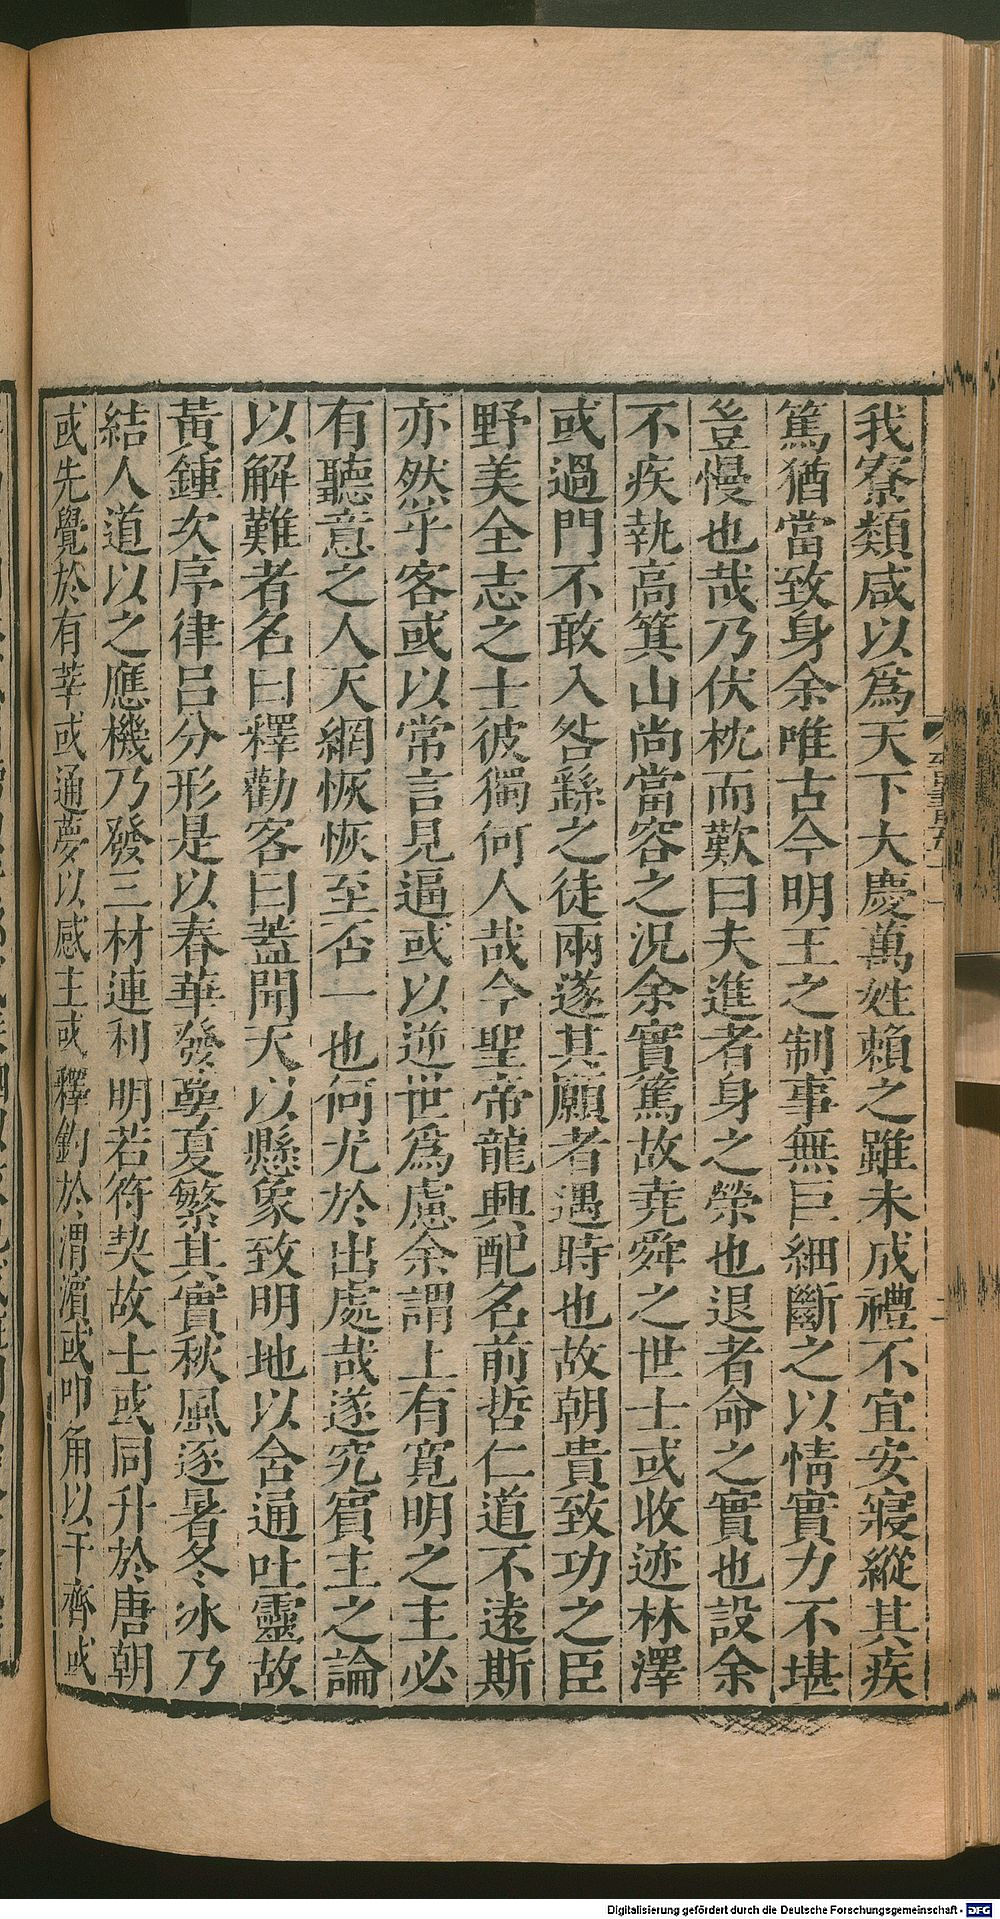 我寮類咸以爲天下大慶萬姓賴之雖未成禮不宜安寢縱其疾
篤猶當致身余唯古今明王之制事無巨細斷之以情實力不堪
豈慢也哉乃伏枕而歎曰夫進者身之榮也退者命之實也設余
不疾執高箕山尚當容之況余實篤故堯舜之世士或收迹林澤
或過門不敢入咎繇之徒兩遂其願者遇時也故朝貴致功之臣
野美全志之士彼獨何人哉今聖帝龍興配名前哲仁道不遠斯
亦然乎客或以常言見逼或以逆世爲慮余謂上有寬明之主必
有聽意之人天網恢恢至否一也何尤於出處哉遂究賓主之論
以解難者名曰釋勸客曰蓋聞天以懸象致明地以含通吐靈故
黃鍾次序律呂分形是以春華發萼夏繁其實秋風逐暑冬冰乃
結人道以之應機乃發三材連利明若符契故士或同升於唐朝
或先覺於有莘或通夢以感主或釋釣於渭濱或叩角以干齊或
Digitalisierung gefördert durch die Deutsche Forschungsgemeinschaft - DFG